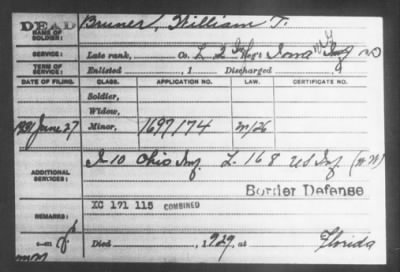 DEAD
NAME OF SOLDIER: Bruner, William T.
SERVICE: Late rank, Co. L 2 Reg't Iowa Inf
TERM OF SERVICE: Enlisted , 1 Discharged
DATE OF FILING. CLASS. APPLICATION NO. LAW. CERTIFICATE NO.
Soldier,
Widow,
1931 June 27 Minor, 1697174 m/26
ADDITIONAL SERVICES: I-10 Ohio Inf. L-168 US Inf (W.W)
Border Defense
XC 171 115 COMBINED
REMARKS:
Died , 1929, at Florida